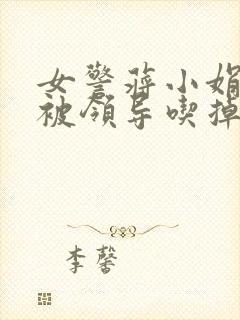 女警蒋小娟
被领导喫掉
李馨